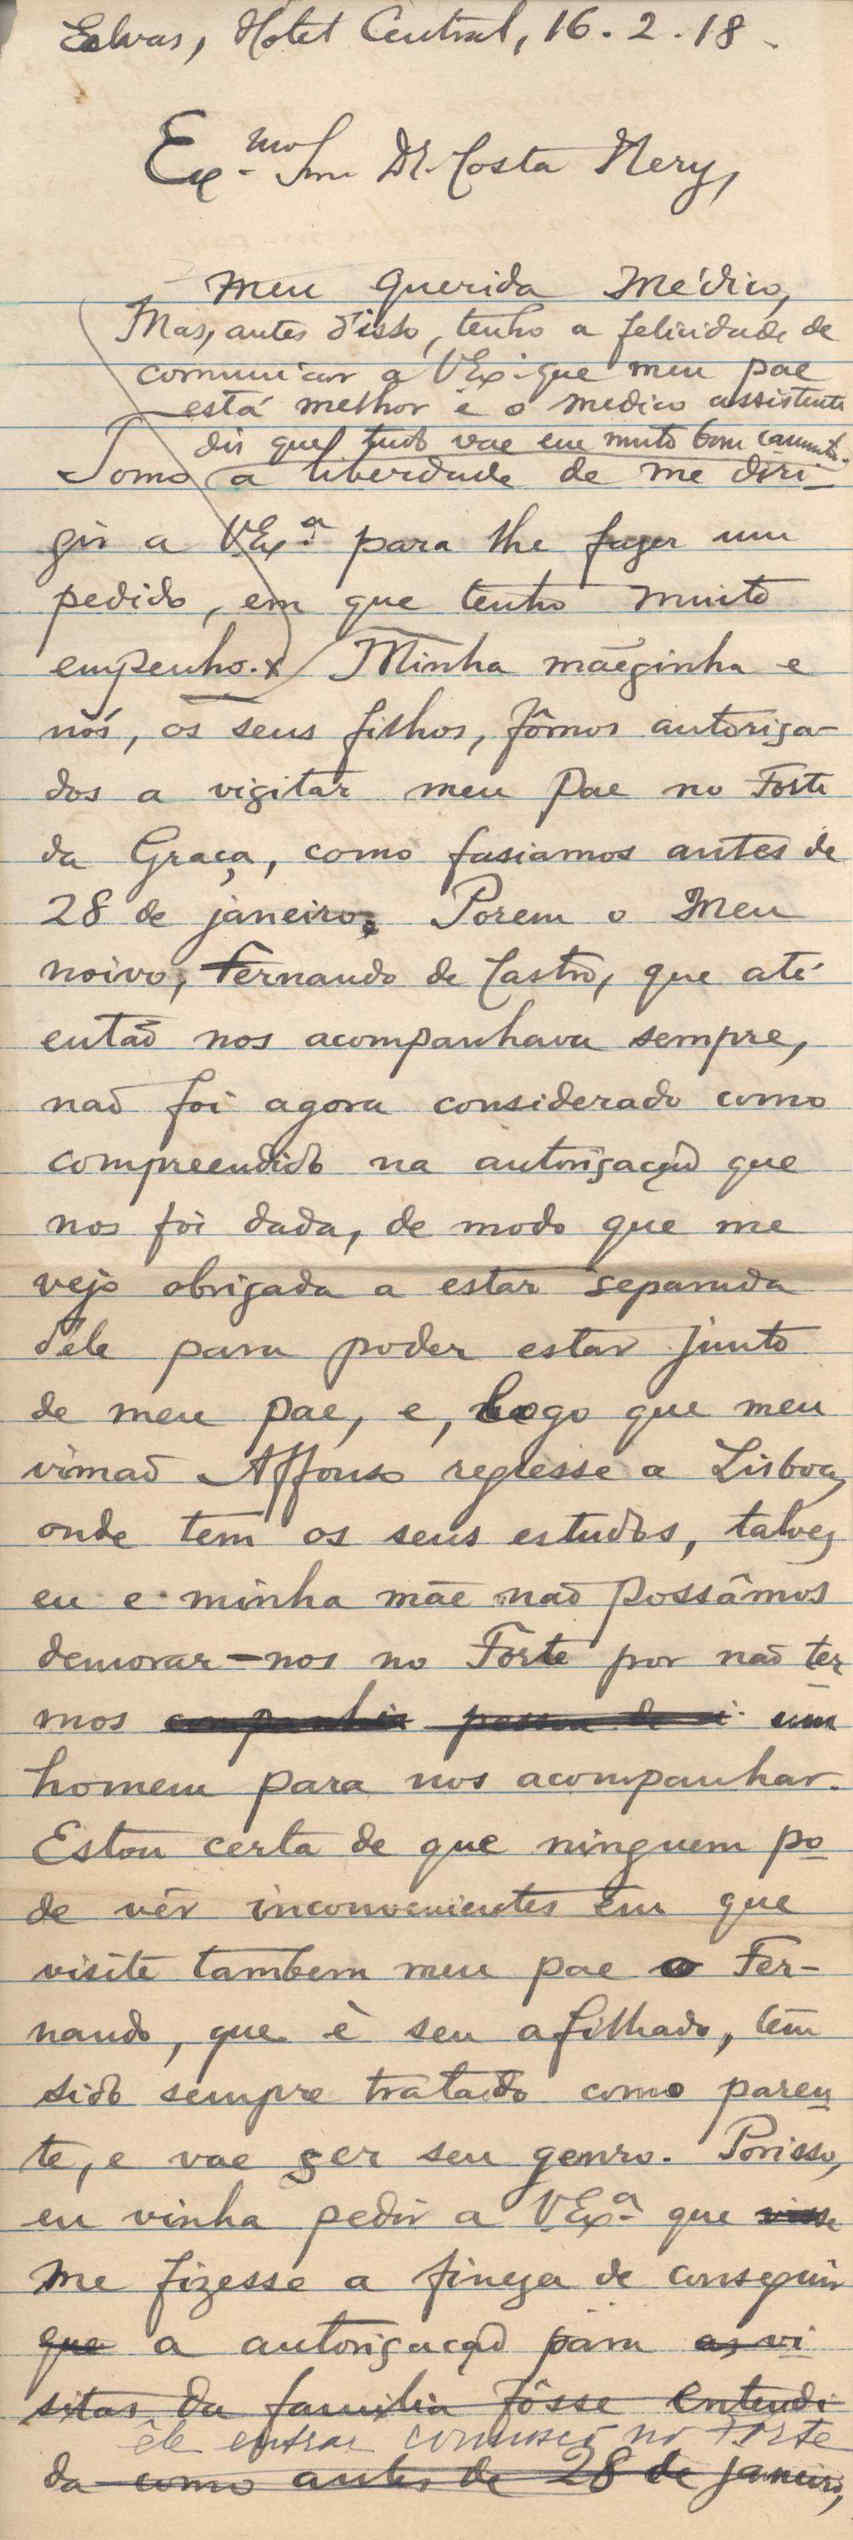 Elvas, Hotel Central, 16.2.18.
Ex.mo Snr. Dr. Costa Nery,
Meu querido Médico,
Mas, antes d'isso, tenho a felicidade de
comunicar a VEx.ª que meu pae
está melhor e o medico assistente
diz que tudo vae em muito bom caminho.
Tomo a liberdade de me diri-
gir a VEx.ª para lhe fazer um
pedido, em que tenho muito
empenho.x Minha mãezinha e
nós, os seus filhos, fômos autoriza-
dos a vizitar meu Pae no Forte
da Graça, como fasiamos antes de
28 de janeiro. Porem o Meu
noivo, Fernando de Castro, que até
então nos acompanhava sempre,
não foi agora considerado como
compreendido na autorização que
nos foi dada, de modo que me
vejo obrigada a estar separada
d'ele para poder estar junto
de meu pae, e, logo que meu
irmão Affonso regresse a Lisboa,
onde tem os seus estudos, talvez
eu e minha mãe não possâmos
demorar-nos no Forte por não ter
mos companhia pessoa de um
homem para nos acompanhar.
Estou certa de que ninguem po
de vêr inconvenientes em que
visite tambem meu pae o Fer-
nando, que é seu afilhado, tem
sido sempre tratado como paren
te, e vae ser seu genro. Porisso,
eu vinha pedir a VEx.ª que visse
me fizesse a fineza de conseguir
que a autorização para as vi
sitas da familia fôsse entendi
êle entrar comnosco no Forte
da como antes de 28 de janeiro,